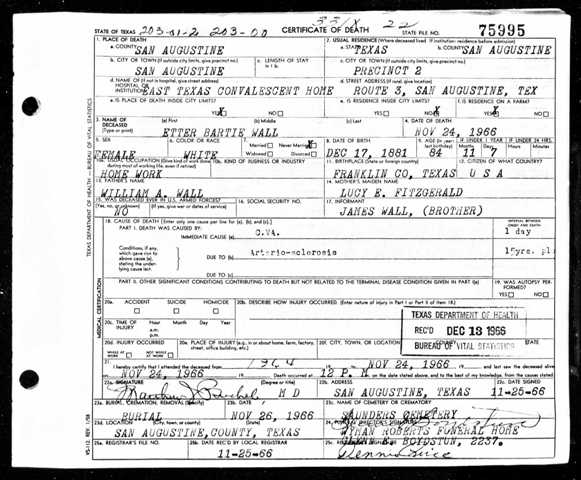 STATE OF TEXAS 203-01-2 203-00 CERTIFICATE OF DEATH STATE FILE NO. 75995
22
1. PLACE OF DEATH
a. COUNTY SAN AUGUSTINE
2. USUAL RESIDENCE (Where deceased lived. If institution: residence before admission)
a. STATE TEXAS b. COUNTY SAN AUGUSTINE
b. CITY OR TOWN (If outside city limits, give precinct no.) SAN AUGUSTINE
c. LENGTH OF STAY in 1 b.
c. CITY OR TOWN (If outside city limits, give precinct no.) PRECINCT 2
d. NAME OF (If not in hospital, give street address) HOSPITAL OR INSTITUTION EAST TEXAS CONVALESCENT HOME
d. STREET ADDRESS (If rural, give location) ROUTE 3, SAN AUGUSTINE, TEX
e. IS PLACE OF DEATH INSIDE CITY LIMITS? YES X NO
e. IS RESIDENCE INSIDE CITY LIMITS? YES NO X
f. IS RESIDENCE ON A FARM? YES NO X
3. NAME OF DECEASED (Type or print) (a) First (b) Middle (c) Last
ETTER BARTIE WALL
4. DATE OF DEATH
NOV 24, 1966
5. SEX FEMALE
6. COLOR OR RACE WHITE
7. Married Never Married X Widowed Divorced
8. DATE OF BIRTH DEC 17, 1881
9. AGE (In years last birthday) 84 IF UNDER 1 YEAR 11 7 IF UNDER 24 HRS.
10a. USUAL OCCUPATION (Give kind of work done) HOME WORK
10b. KIND OF BUSINESS OR INDUSTRY
11. BIRTHPLACE (State or foreign country) FRANKLIN CO, TEXAS
12. CITIZEN OF WHAT COUNTRY? U S A
13. FATHER'S NAME WILLIAM A. WALL
14. MOTHER'S MAIDEN NAME LUCY E. FITZGERALD
15. WAS DECEASED EVER IN U.S. ARMED FORCES? (Yes, no, or unknown) (If yes, give war or dates of service) NO
16. SOCIAL SECURITY NO.
17. INFORMANT JAMES WALL, (BROTHER)
18. CAUSE OF DEATH [Enter only one cause per line for (a), (b), and (c).]
INTERVAL BETWEEN ONSET AND DEATH
PART I. DEATH WAS CAUSED BY:
IMMEDIATE CAUSE (a) C.VA. 1 day
Conditions, if any, which gave rise to above cause (a), stating the underlying cause last.
DUE TO (b) Arterio-sclerosis 15yrs.
DUE TO (c)
PART II. OTHER SIGNIFICANT CONDITIONS CONTRIBUTING TO DEATH BUT NOT RELATED TO THE TERMINAL DISEASE CONDITION GIVEN IN PART I(a)
19. WAS AUTOPSY PERFORMED? YES NO
20a. ACCIDENT SUICIDE HOMICIDE
20b. DESCRIBE HOW INJURY OCCURRED. (Enter nature of injury in Part I or Part II of item 18.)
20c. TIME OF INJURY Hour Month Day Year a.m. p.m.
TEXAS DEPARTMENT OF HEALTH
REC'D DEC 13 1966
BUREAU OF VITAL STATISTICS
20d. INJURY OCCURRED WHILE AT WORK NOT WHILE AT WORK
20e. PLACE OF INJURY (e.g., in or about home, farm, factory, street, office building, etc.)
20f. CITY, TOWN, OR LOCATION COUNTY STATE
21. I hereby certify that I attended the deceased from 1964 to NOV 24, 1966 and last saw the deceased alive on NOV 24, 1966 Death occurred at 12 P. M. on the date stated above, and to the best of my knowledge, from the causes stated.
22a. SIGNATURE (Degree or title) M D
22b. ADDRESS SAN AUGUSTINE, TEXAS
22c. DATE SIGNED 11-25-66
23a. BURIAL, CREMATION, REMOVAL (Specify) BURIAL
23b. DATE NOV 26, 1966
23c. NAME OF CEMETERY OR CREMATORY SAUNDERS CEMETERY
23d. LOCATION (City, town, or county) (State) SAN AUGUSTINE, COUNTY, TEXAS
24. WYMAN ROBERTS FUNERAL HOME
BOYDSTUN, 2237.
25a. REGISTRAR'S FILE NO.
25b. DATE REC'D BY LOCAL REGISTRAR 11-25-66
25c. REGISTRAR'S SIGNATURE
TEXAS DEPARTMENT OF HEALTH — BUREAU OF VITAL STATISTICS
MEDICAL CERTIFICATION
VS-112 REV. 1/58